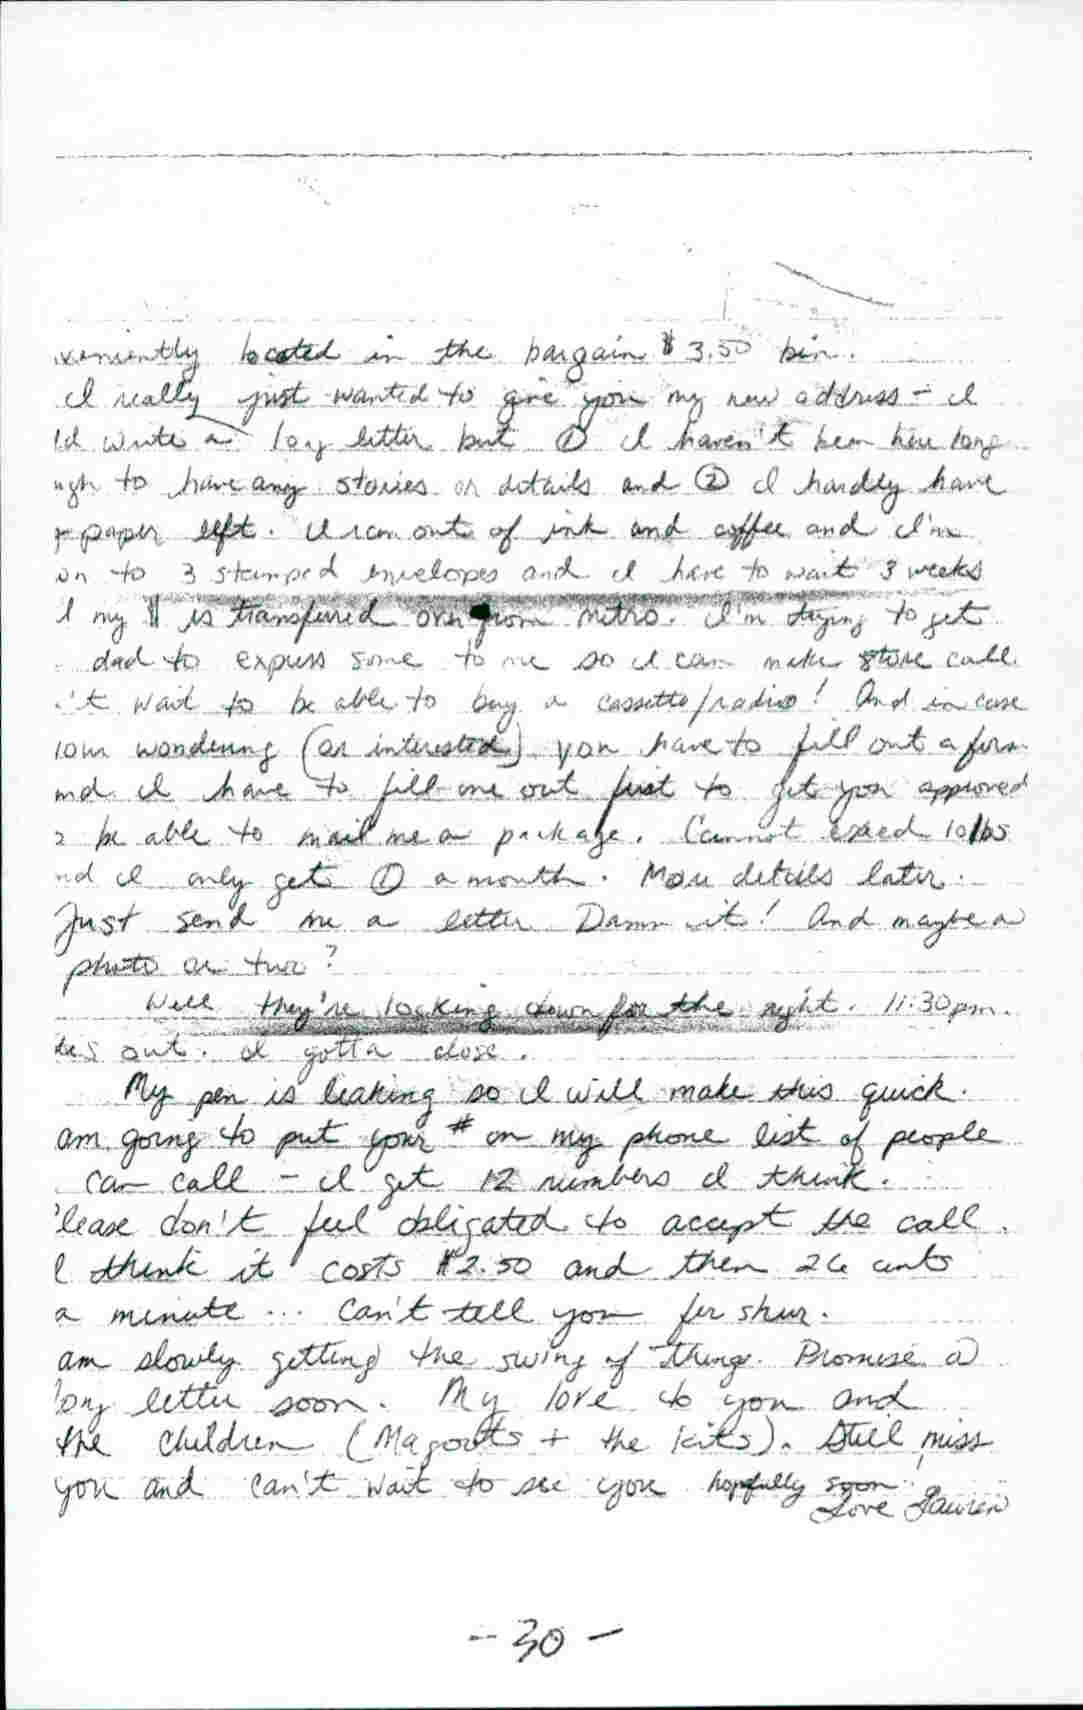 veniently located in the bargain $3.50 bin.
I really just wanted to give you my new address - I
ld write a long letter but ① I haven't been here long
ugh to have any stories or details and ② I hardly have
paper left. I ran out of ink and coffee and I'm
wn to 3 stamped envelopes and I have to wait 3 weeks
l my $ is transferred over from metro. I'm trying to get
dad to express some to me so I can make store call.
't wait to be able to buy a cassette/radio! And in case
your wondering (or interested) you have to fill out a form
and I have to fill one out first to get you approved
o be able to mail me a package. Cannot exceed 10 lbs
nd I only get ① a month. More details later.
Just send me a letter Damn it! And maybe a
photo or two?
Well they're locking down for the night. 11:30pm.
tes out. I gotta close.
My pen is leaking so I will make this quick.
am going to put your # on my phone list of people
can call - I get 12 numbers I think.
lease don't feel obligated to accept the call.
I think it costs $2.50 and then 26 cents
a minute ... Can't tell you fer shur.
am slowly getting the swing of things. Promise a
long letter soon. My love to you and
the children (Magoots + the kits). Still miss
you and can't wait to see you hopefully soon
Love Lauren
- 30 -